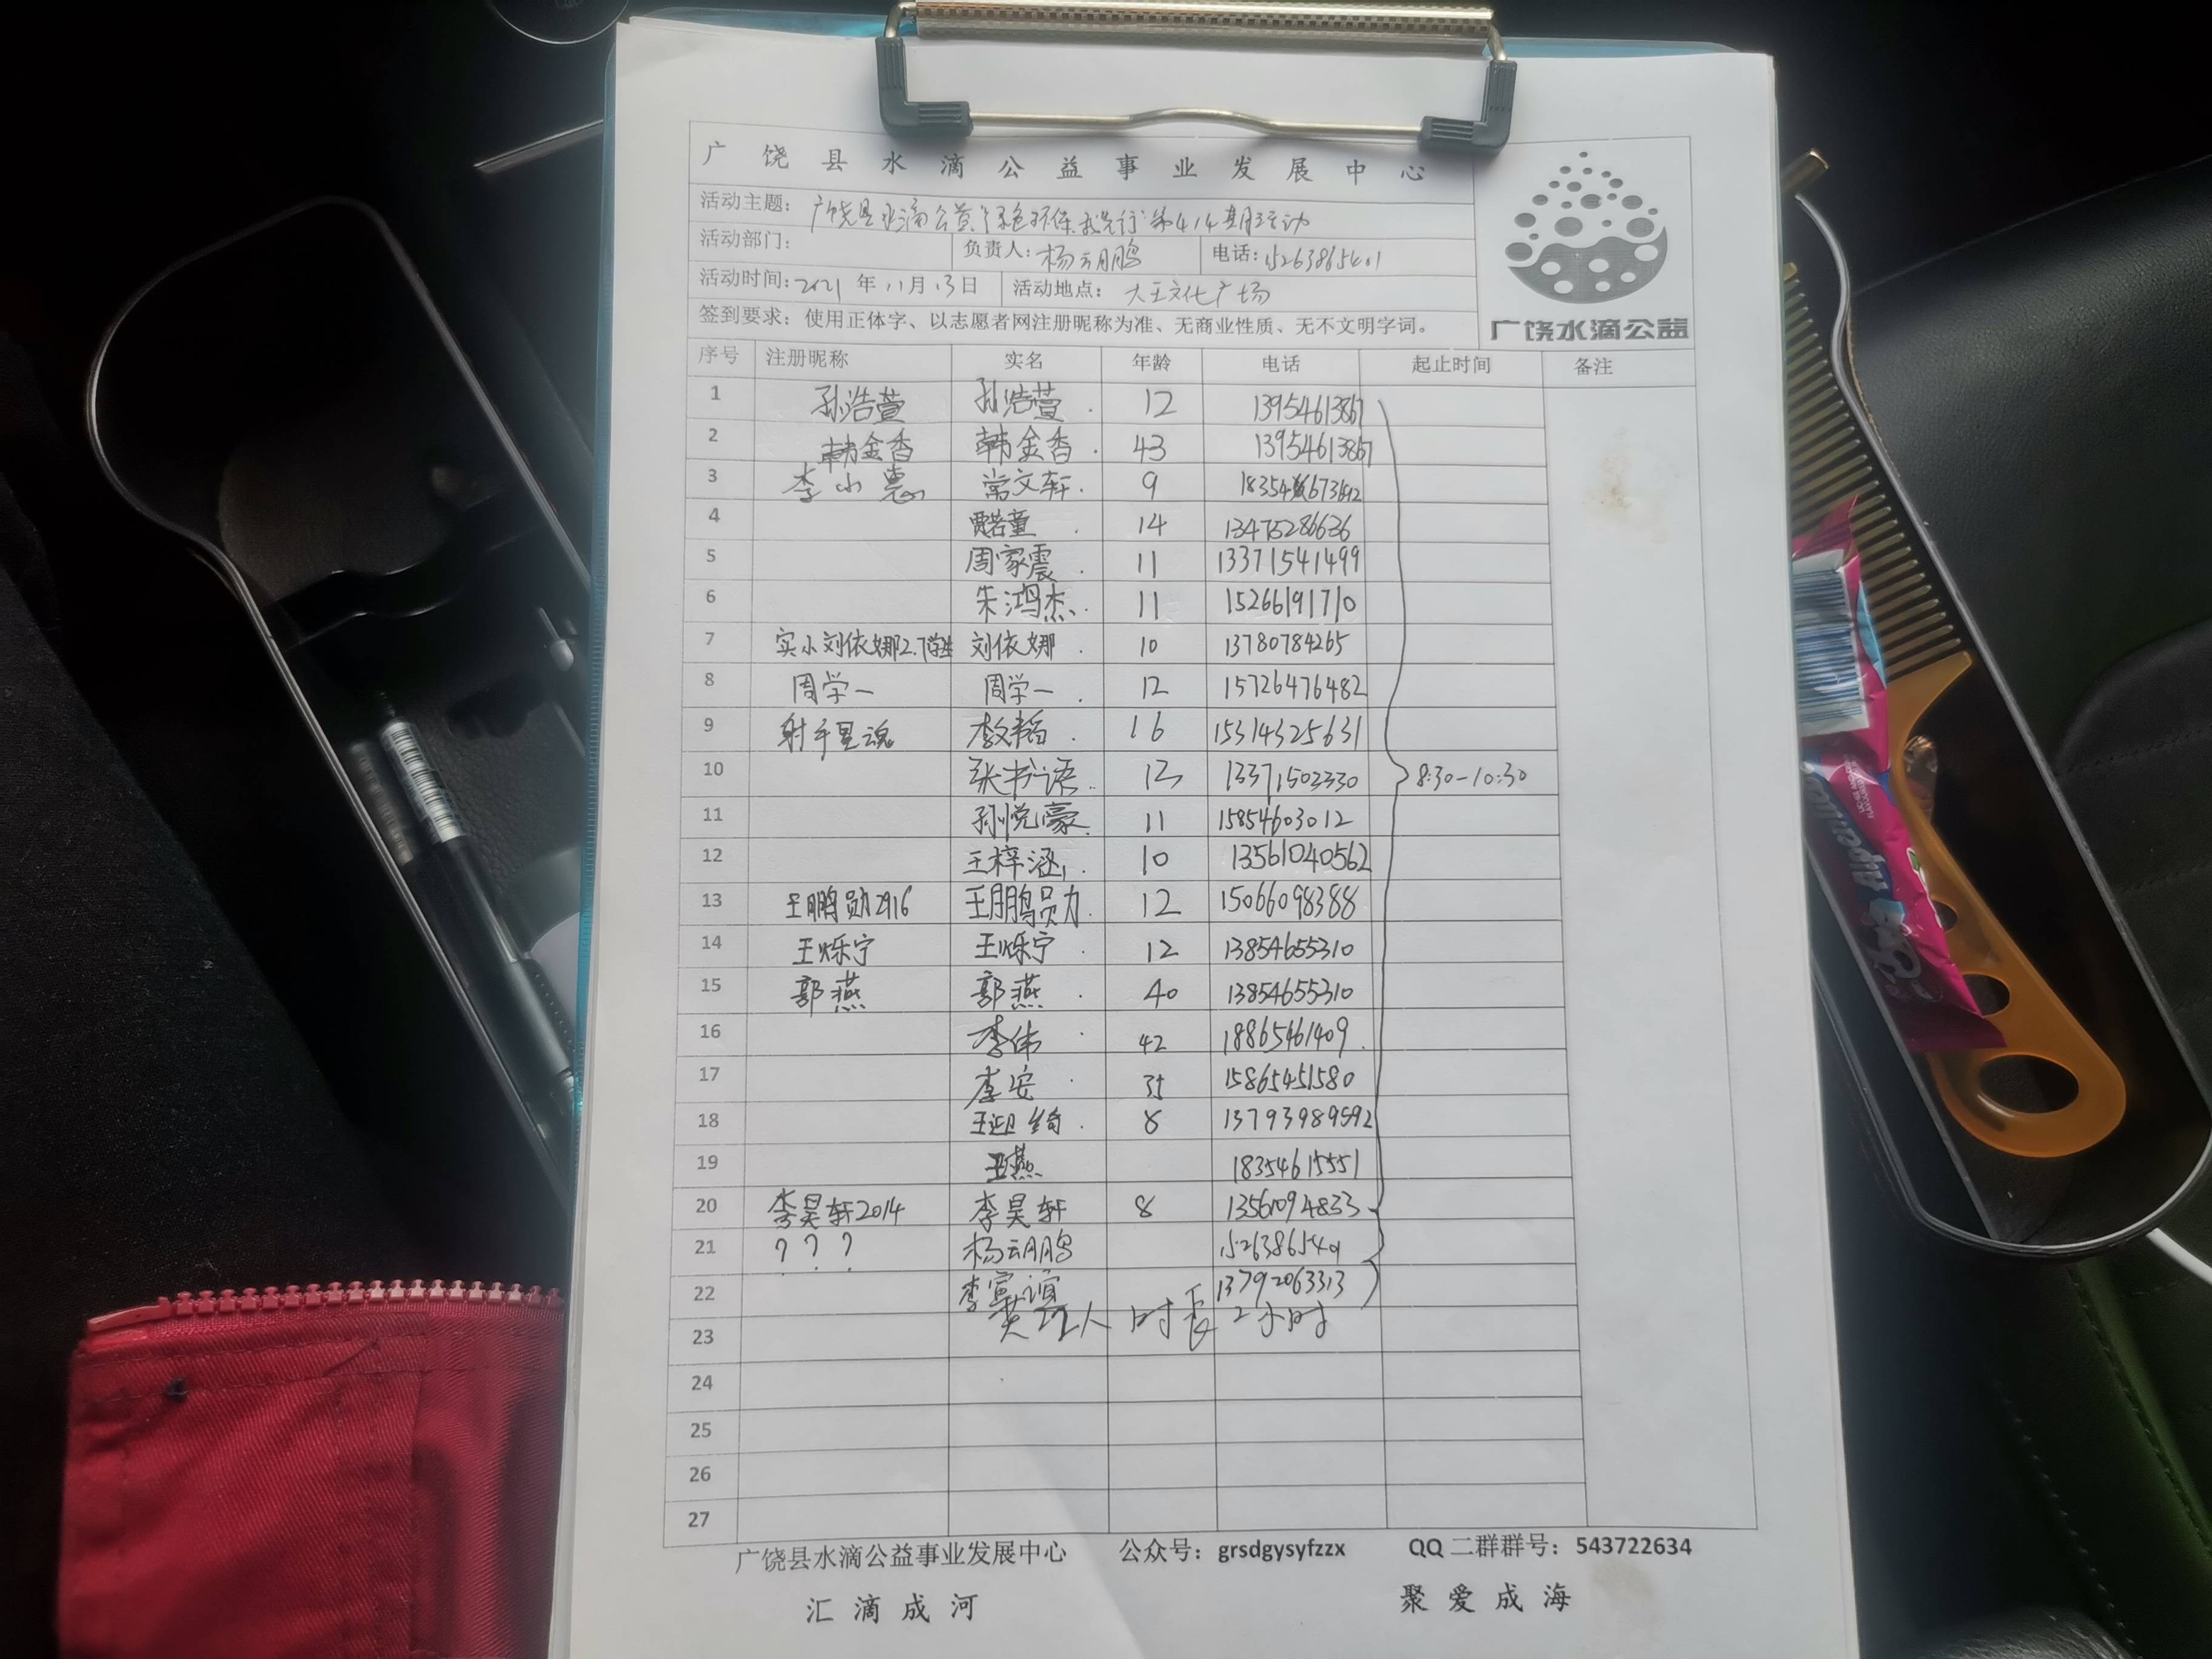 广饶县水滴公益事业发展中心
活动主题：广饶县水滴公益"绿色环保,我先行"第414期活动
活动部门： 负责人：杨云鹏 电话：15263865401
活动时间：2021年11月13日 活动地点：大王文化广场
签到要求：使用正体字、以志愿者网注册昵称为准、无商业性质、无不文明字词。
广饶水滴公益
序号 注册昵称 实名 年龄 电话 起止时间 备注
1 孙浩萱 孙浩萱 12 13954613867
2 韩金香 韩金香 43 13954613867
3 李小惠 常文轩 9
4 贾若童 14 13475286636
5 周家震 11 13371541499
6 朱鸿杰 11 15266191710
7 实小刘依娜2.7学生 刘依娜 10 13780784265
8 周学一 周学一 12 15726476482
9 射手星魂 李文韬 16 15314325631
10 张书语 13 13371503330 8:30-10:30
11 孙悦豪 11 15854603012
12 王梓涵 10 13561040562
13 王鹏勋2916 王鹏勋 12 15066098388
14 王烁宁 王烁宁 12 13854655310
15 郭燕 郭燕 40 13854655310
16 李伟 42 18865461409
17 李安 35 15865451580
18 王迎绮 8 13793989592
19 王燕 18354615551
20 李昊轩2014 李昊轩 8 13561094833
21 ？？？ 杨云鹏 15263865401
22 李宣谊 13792063313
23 共22人 时长2小时
24
25
26
27
广饶县水滴公益事业发展中心 公众号：grsdgysyfzzx QQ二群群号：543722634
汇滴成河 聚爱成海